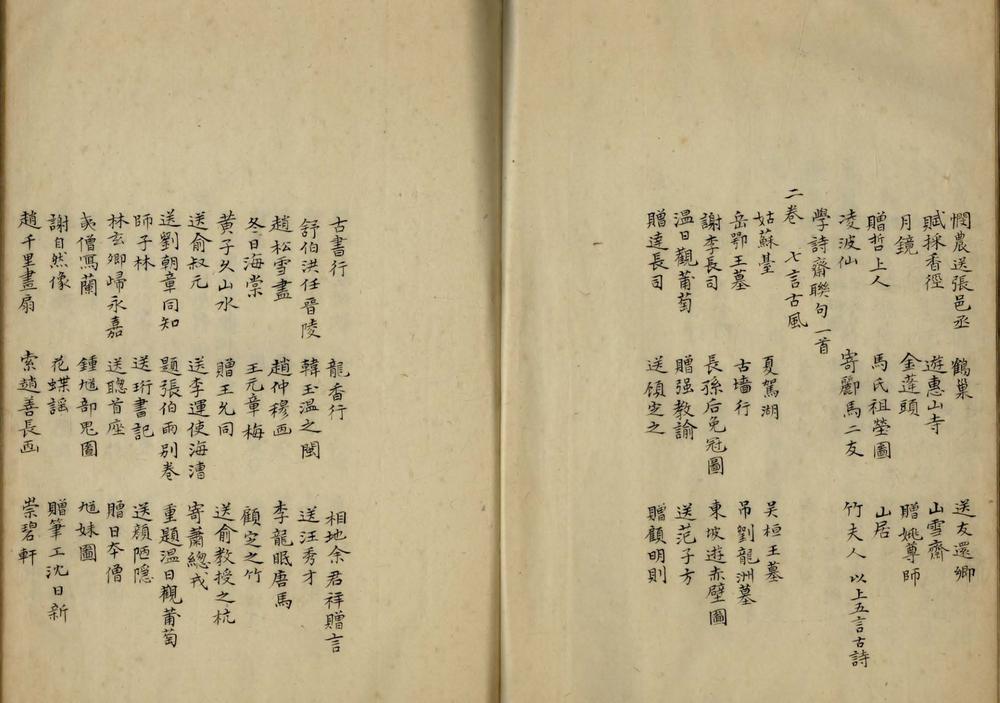 憫農送張邑丞 鶴巢 送友還鄉
賦採香徑 遊惠山寺 山雪齋
月鏡 金蓮頭 贈姚尊師
贈哲上人 馬氏祖塋圖 山居
凌波仙 寄酈馬二友 竹夫人 以上五言古詩
學詩齋聯句一首
二卷 七言古風
姑蘇臺 夏駕湖 吴桓王墓
岳鄂王墓 古墻行 吊劉龍洲墓
謝李長司 長孫后免冠圖 東坡遊赤壁圖
温日觀蒲萄 贈强教諭 送范子方
贈達長司 送顧定之 贈顧明則
古書行 龍香行 相地余君祥贈言
舒伯洪任晉陵 韓玉温之閩 送汪秀才
趙松雪畫 趙仲穆画 李龍眠唐馬
冬日海棠 王元章梅 顧定之竹
黄子久山水 贈王允同 送俞教授之杭
送俞叔元 送李運使海漕 寄蕭總戎
送劉朝章同知 題張伯雨别卷 重題温日觀蒲萄
師子林 送珩書記 送顔陋隱
林玄卿歸永嘉 送聰首座 贈日本僧
夷僧寫蘭 鍾馗部鬼圖 馗妹圖
謝自然像 花蝶謡 贈筆工沈日新
趙千里畫扇 索趙善長画 崇碧軒